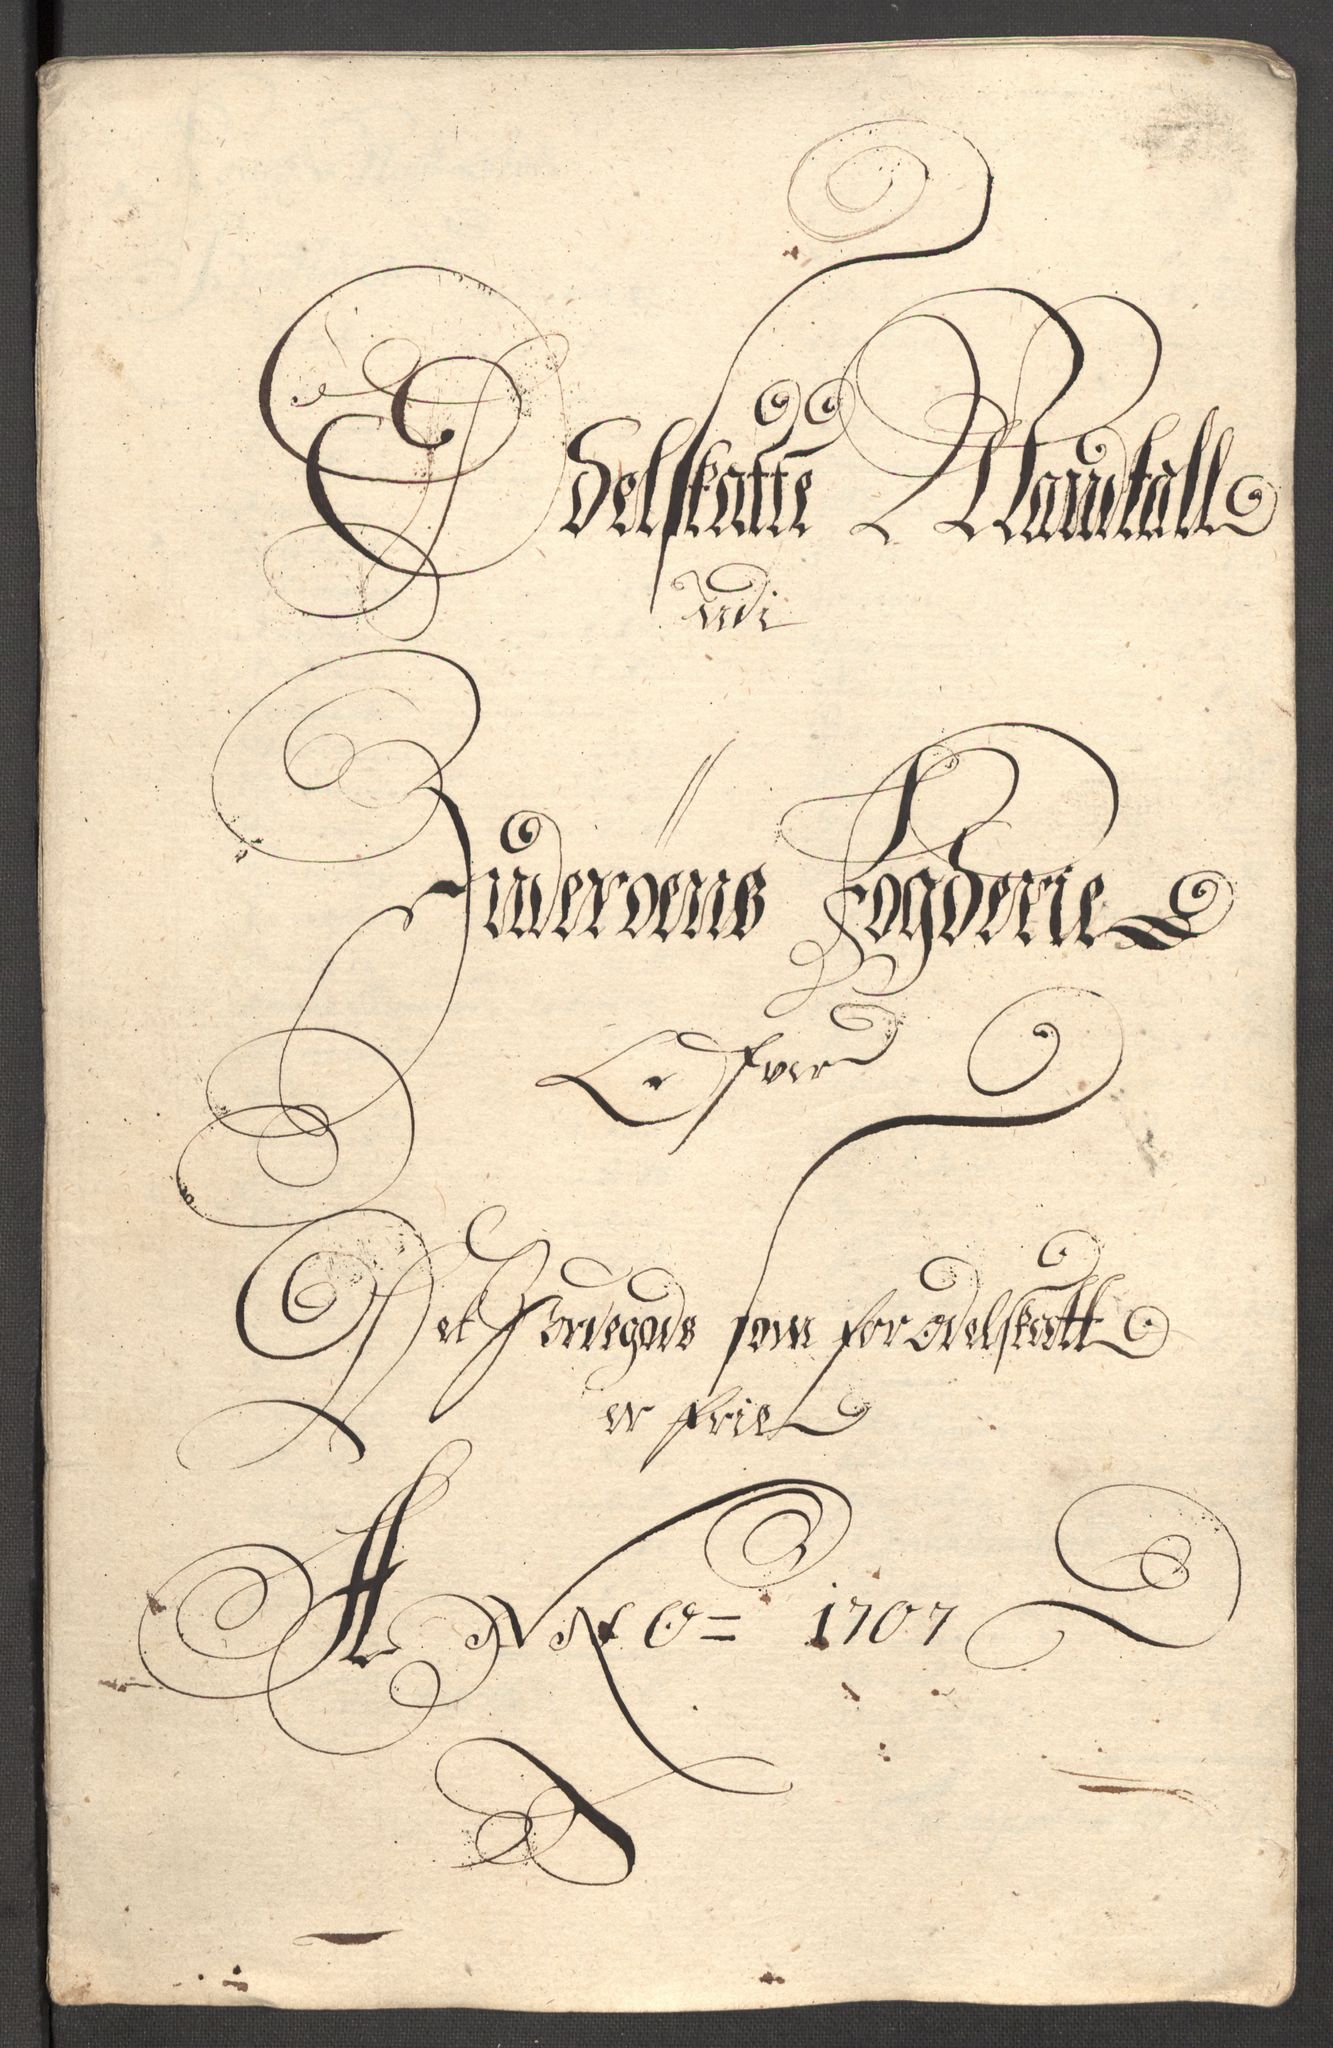 Odelskatte Mandtall
udi
Inderøens Fogderie
Ofver
Det Jordegods som for Odelskatt
er frie
ANNO = 1707